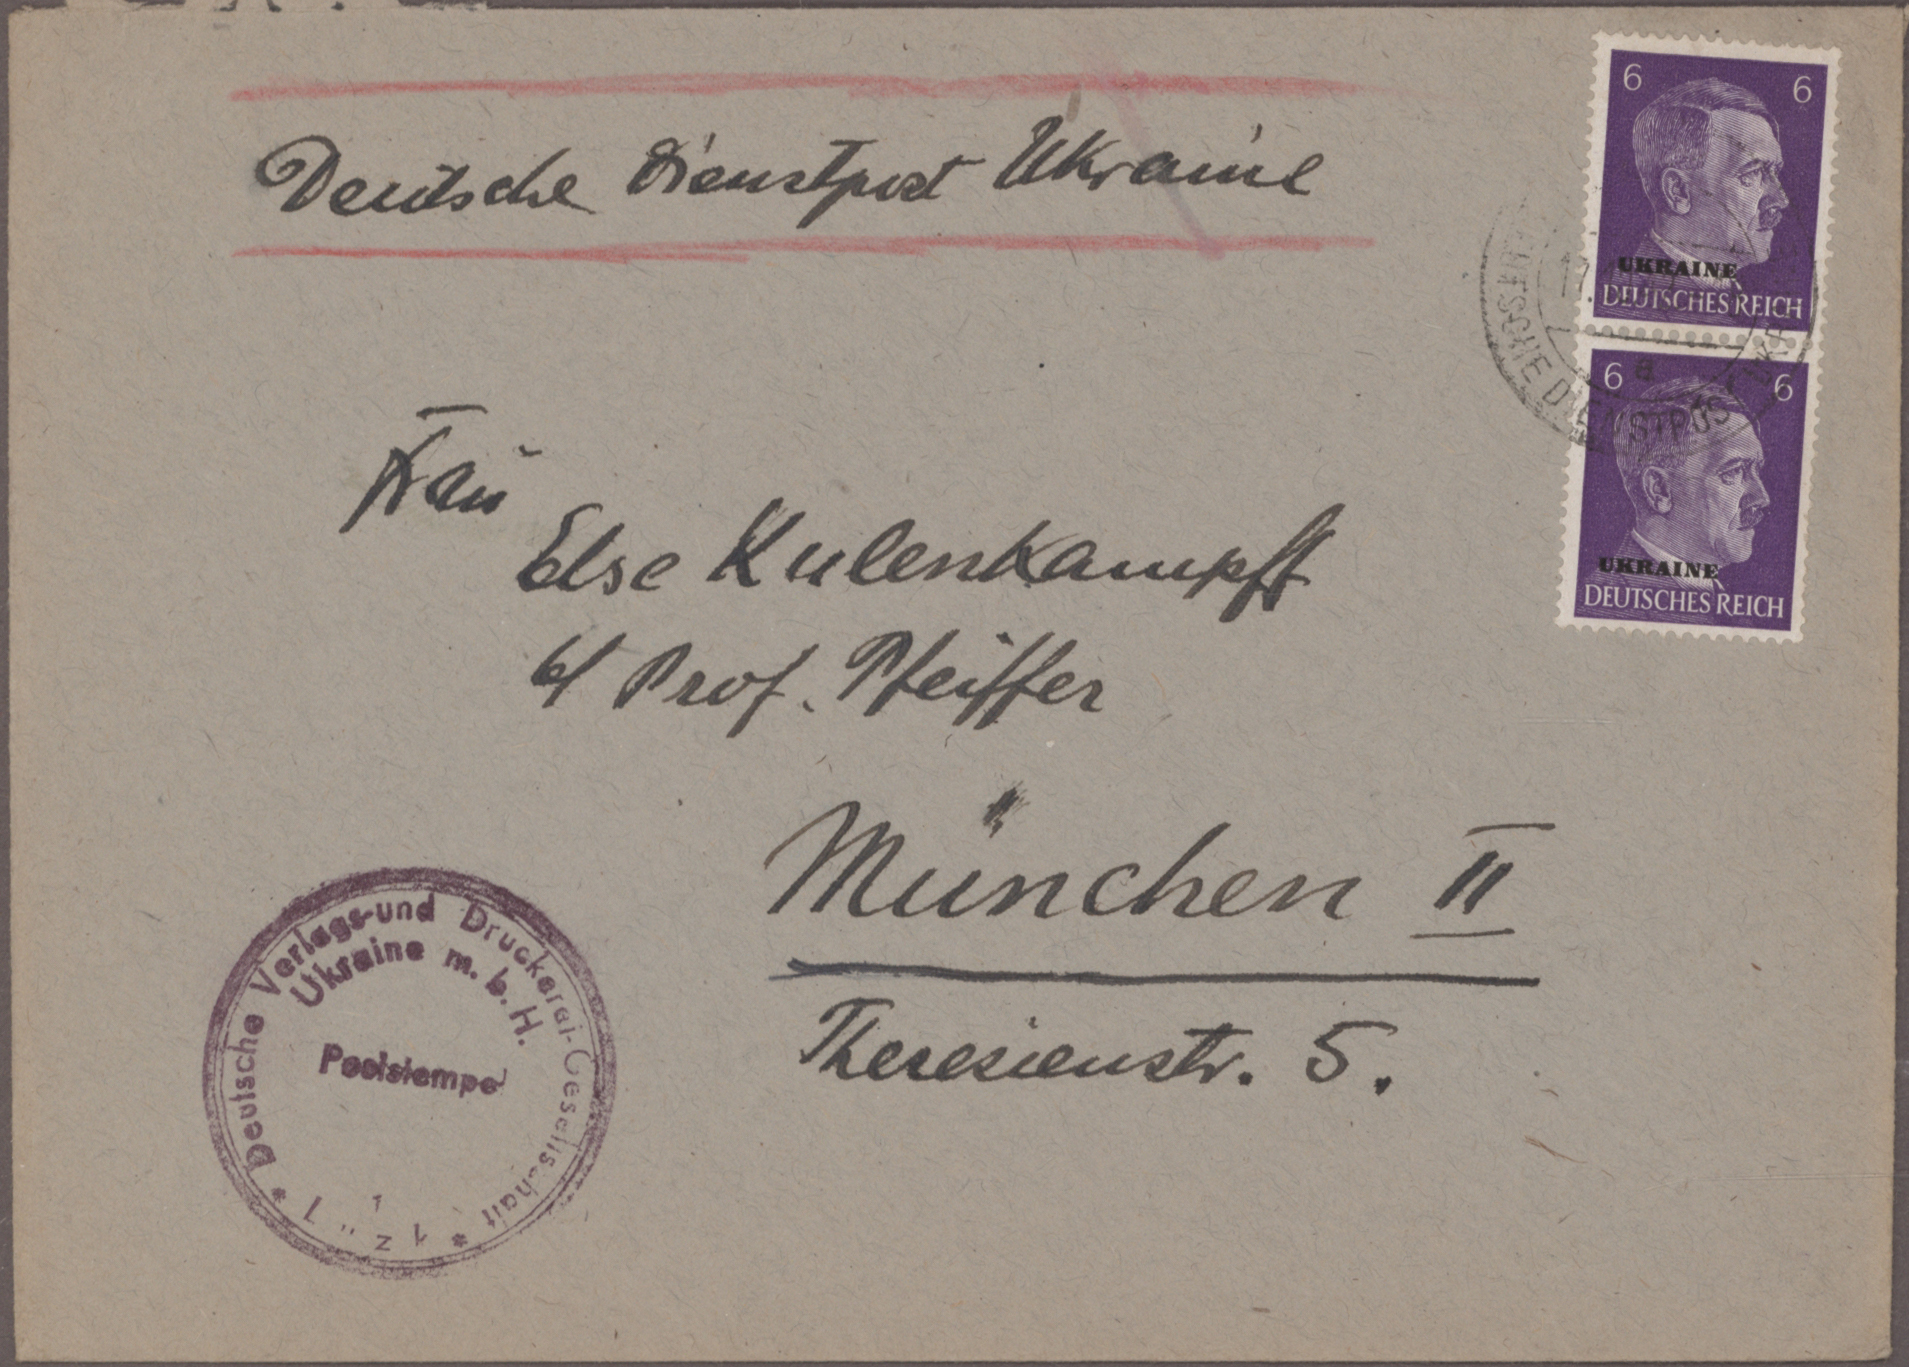 Deutsche Dienstpost Ukraine
6 6
UKRAINE
DEUTSCHES REICH
6 6
UKRAINE
DEUTSCHES REICH
17.
a
DEUTSCHE DIENSTPOST UKR
Frau
Else Kulenkampff
b/ Prof. Pfeiffer
München II
Theresienstr. 5.
* Deutsche Verlags-und Druckerei-Gesellschaft *
Ukraine m. b. H.
Poststempel
1